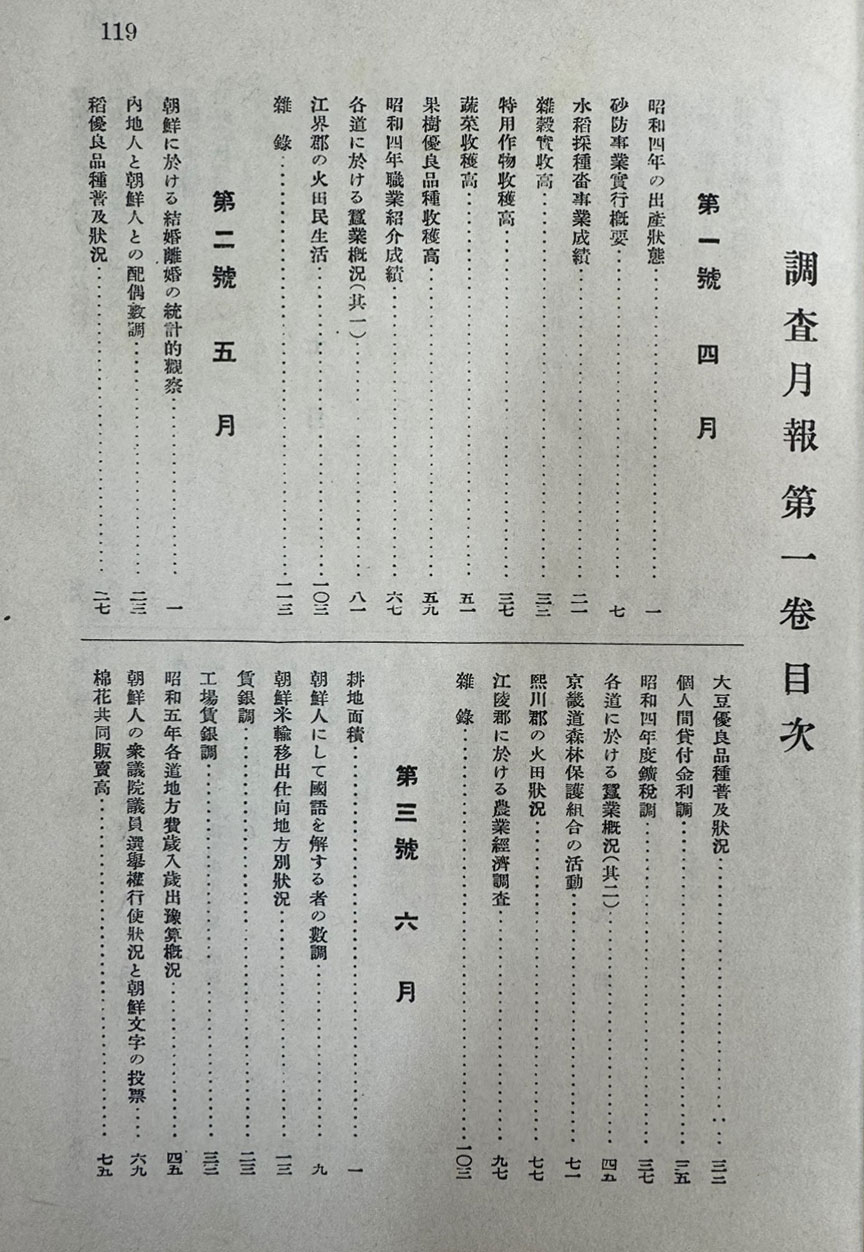 119
調査月報第一卷目次
第一號 四月
昭和四年の出產狀態……一
砂防事業實行概要……七
水稻採種畓事業成績……二一
雜穀實收高……三三
特用作物收穫高……三七
蔬菜收穫高……五一
果樹優良品種收穫高……五九
昭和四年職業紹介成績……六七
各道に於ける蠶業槪況(其一)……八一
江界郡の火田民生活……一〇三
雜錄……一一三
第二號 五月
朝鮮に於ける結婚離婚の統計的觀察……一
內地人と朝鮮人との配偶數調……二三
稻優良品種普及狀況……二七
大豆優良品種普及狀況……三二
個人間貸付金利調……三五
昭和四年度鑛稅調……三七
各道に於ける蠶業槪況(其二)……四五
京畿道森林保護組合の活動……七一
熙川郡の火田狀況……七七
江陵郡に於ける農業經濟調査……九七
雜錄……一〇三
第三號 六月
耕地面積……一
朝鮮人にして國語を解する者の數調……九
朝鮮米輸移出仕向地方別狀況……一三
賃銀調……二三
工場賃銀調……三三
昭和五年各道地方費歲入歲出豫算槪況……四五
朝鮮人の衆議院議員選擧權行使狀況と朝鮮文字の投票……六九
棉花共同販賣高……七五